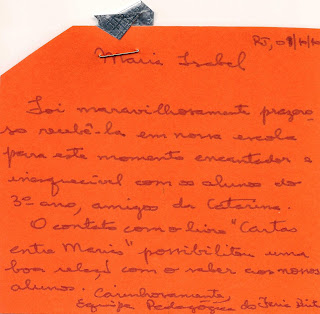 RJ, 08/10/10
Maria Isabel
Foi maravilhosamente prazero-
so recebê-la em nossa escola
para este momento encantador e
inesquecível com os alunos do
3º ano, amigos da Catarina.
O contato com o livro "Cartas
entre Marias" possibilitou uma
boa relação com o saber aos nossos
alunos. Carinhosamente,
Equipe Pedagógica do